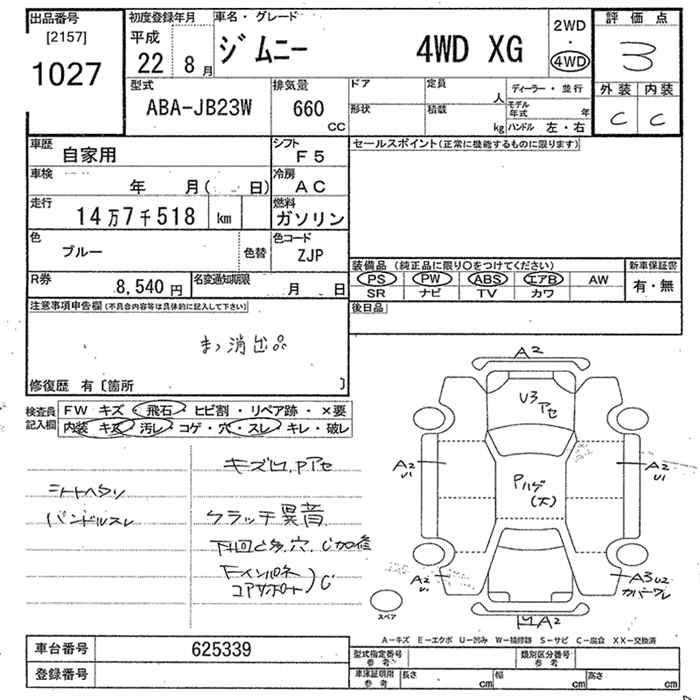 出品番号
[2157]
1027
初度登録年月
平成
22 8月
車名・グレード
ジムニー 4WD XG
2WD
・
4WD
評価点
3
外装 内装
C C
型式
ABA-JB23W
排気量
660
CC
ドア
定員
人
形状
積載
kg
ディーラー・並行
モデル年式 年
ハンドル 左・右
車歴
自家用
シフト
F5
セールスポイント(正常に機能するものに限ります)
車検
年 月( 日)
冷房
AC
走行
14万7千518 km
燃料
ガソリン
色
ブルー
色替
色コード
ZJP
装備品 (純正品に限り○をつけてください)
新車保証書
PS PW ABS エアB AW
SR ナビ TV カワ
有・無
R券
8,540円
名変通知期限
月 日
後日品
注意事項申告欄(不具合内容等は具体的に記入して下さい)
まっ消出品
修復歴 有〔箇所 〕
検査員記入欄
FW キズ・飛石・ヒビ割・リペア跡・×要
内装 キズ・汚レ・コゲ・穴・スレ・キレ・破レ
キズロ,Pアセ
シートヘタリ
ハンドルスレ
クラッチ異音
下回とめ,穴,C加修
Fインパネ
コアサポート)C
A2
U3 アセ
A2 U1
A2 U1
Pハゲ
(大)
A2 U1
A3 U2
カバーワレ
A2
スペア
A-キズ E-エクボ U-凹み W-補修跡 S-サビ C-腐食 XX-交換済
車台番号
625339
登録番号
型式指定番号 参考
類別区分番号 参考
車庫証明用 参考
長さ cm
幅 cm
高さ cm